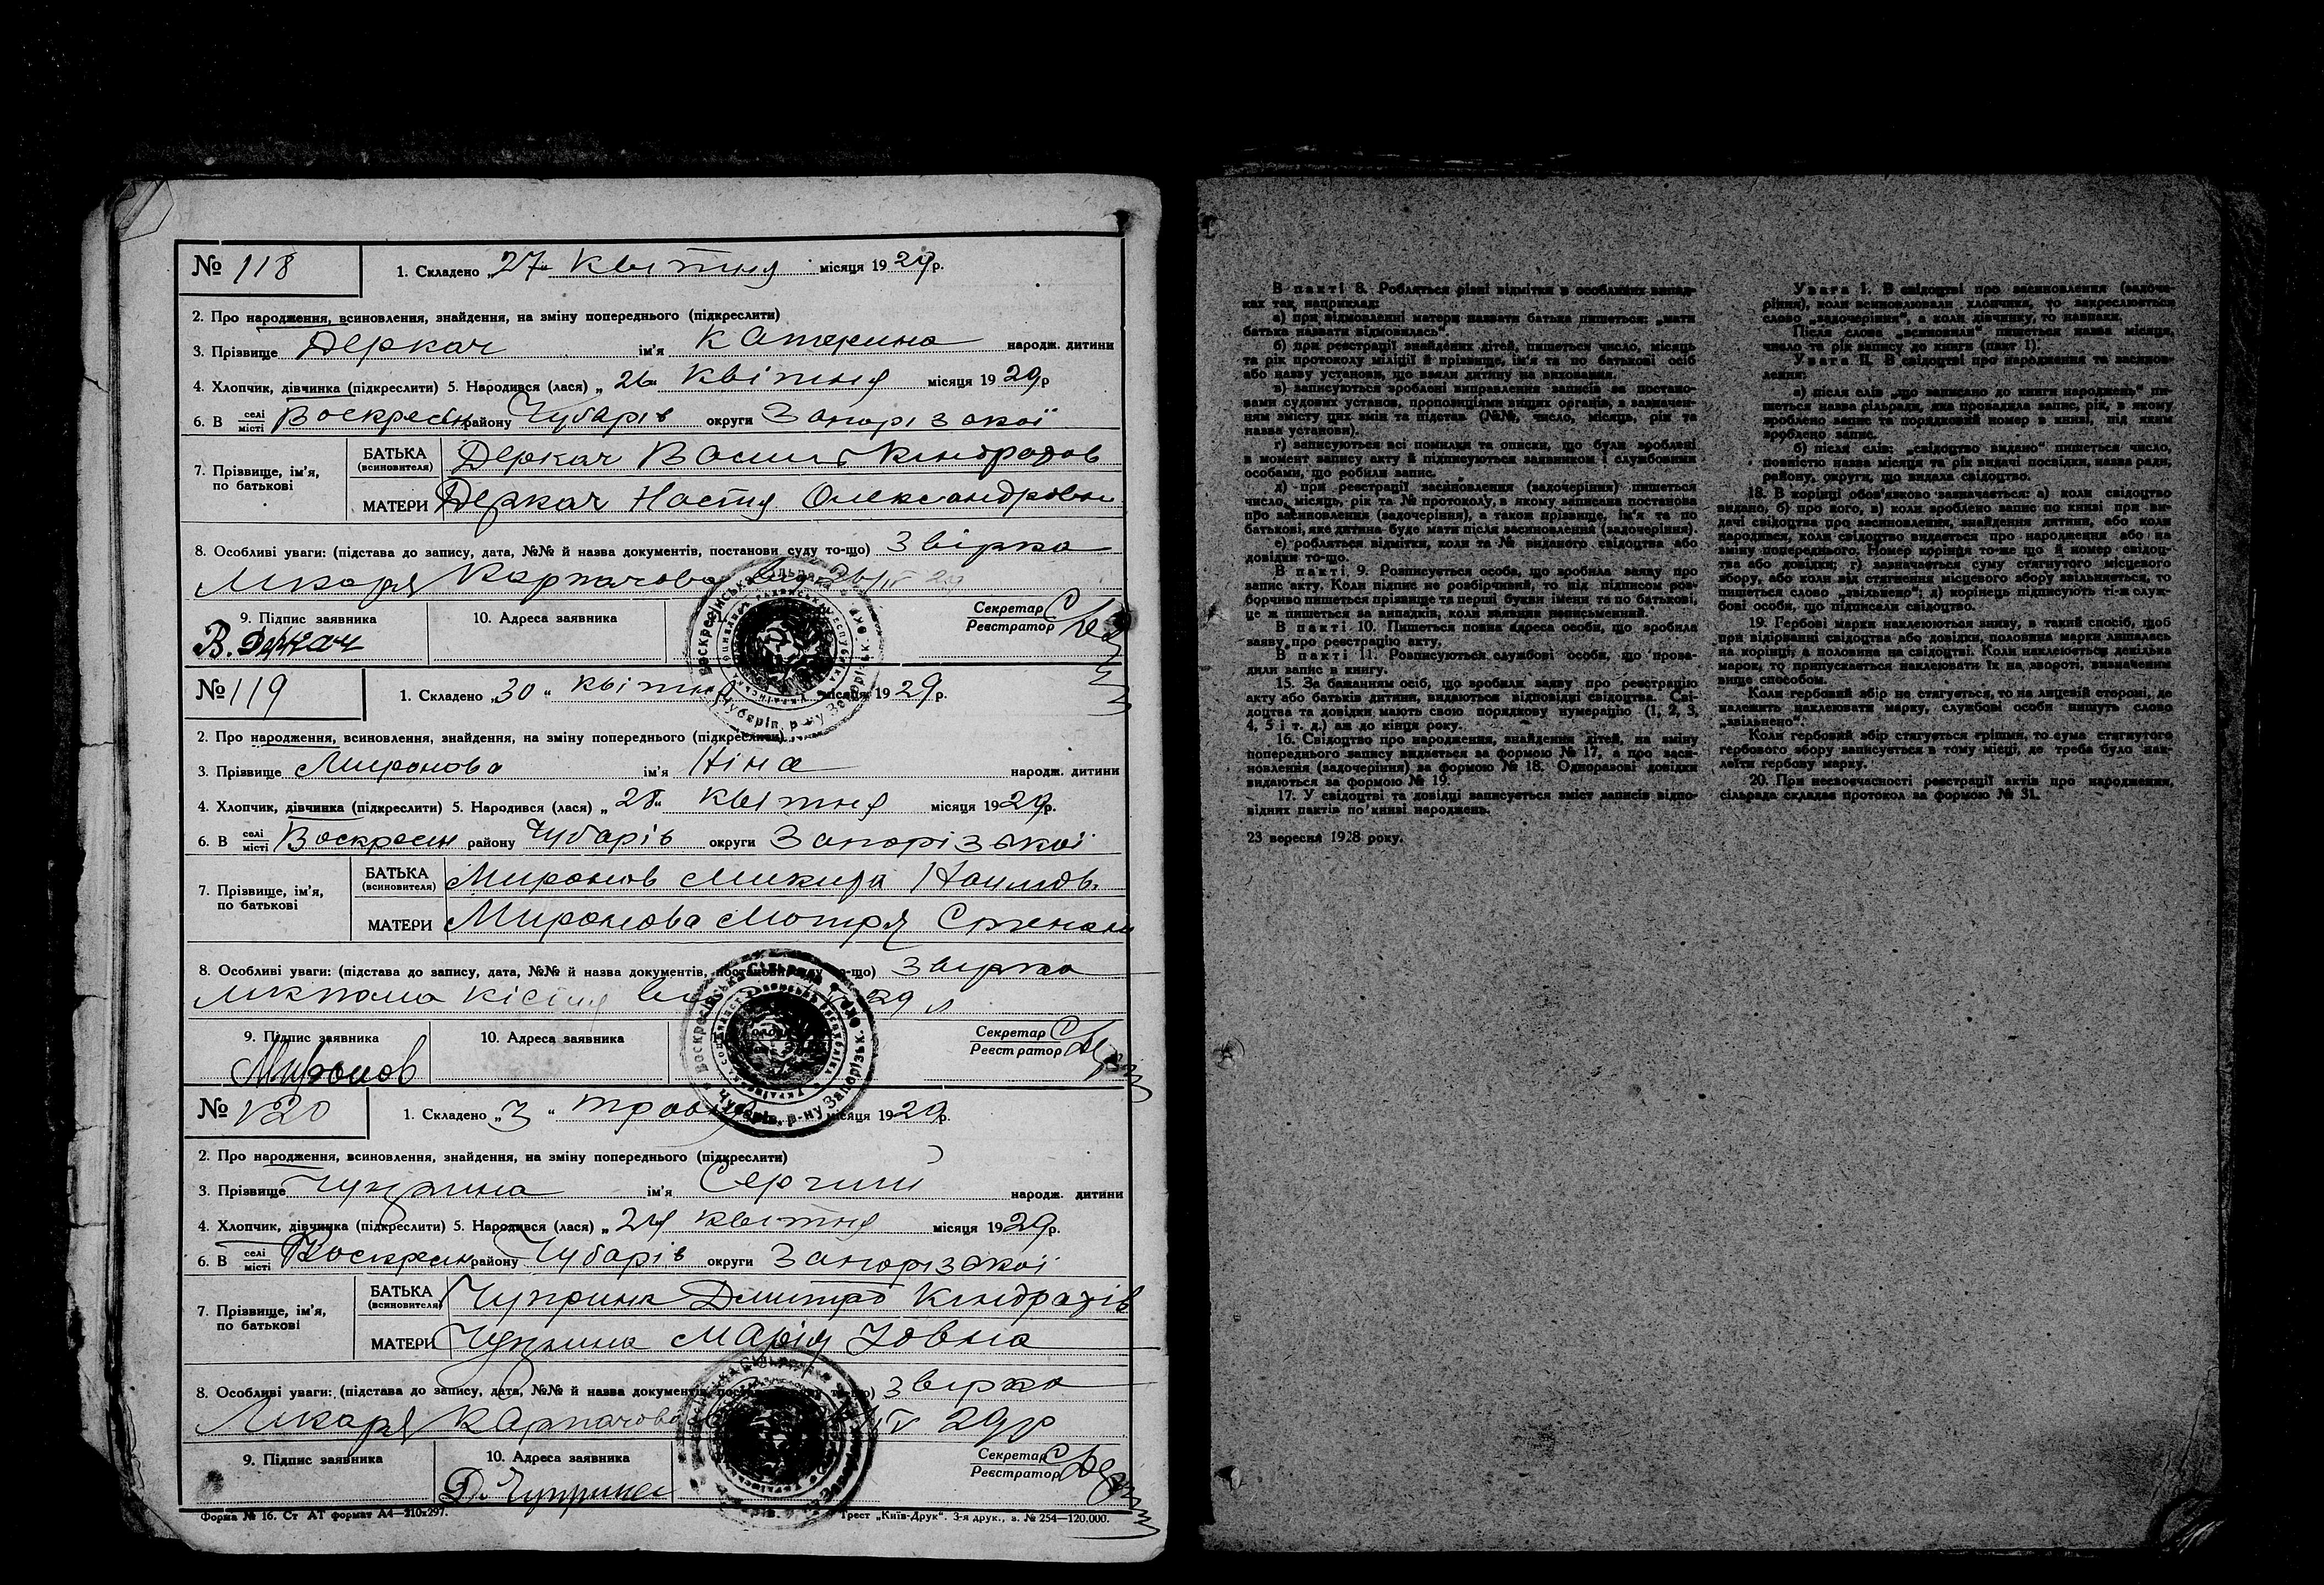 № 118
1. Складено „27“ квітня місяця 1929р.
2. Про народження, всиновлення, знайдення, на зміну попереднього (підкреслити)
3. Прізвище Деркач ім'я Катерина народж. дитини
4. Хлопчик, дівчинка (підкреслити) 5. Народився (лася) „26“ квітня місяця 1929р
6. В селі місті Воскресен району Чубарів округи Запорізької
7. Прізвище, ім'я, по батькові
БАТЬКА (всиновителя) Деркач Василь Кіндратов
МАТЕРИ Деркач Настя Олександровн
8. Особливі уваги: (підстава до запису, дата, №№ й назва документів, постанови суду то-що) Звірка
Лікаря Карпачова
9. Підпис заявника
10. Адреса заявника
Секретар
Реєстратор
В. Деркач
№ 119
1. Складено „30“ квітня місяця 1929р.
2. Про народження, всиновлення, знайдення, на зміну попереднього (підкреслити)
3. Прізвище Миронова ім'я Ніна народж. дитини
4. Хлопчик, дівчинка (підкреслити) 5. Народився (лася) „28“ квітня місяця 1929р.
6. В селі місті Воскресен району Чубарів округи Запорізької
7. Прізвище, ім'я, по батькові
БАТЬКА (всиновителя) Миронов Микита
МАТЕРИ Миронова Мотря Степан
8. Особливі уваги: (підстава до запису, дата, №№ й назва документів, постанови суду то-що) Звірка
29
9. Підпис заявника
10. Адреса заявника
Секретар
Реєстратор
Миронов
№ 120
1. Складено „3“ травня місяця 1929р.
2. Про народження, всиновлення, знайдення, на зміну попереднього (підкреслити)
3. Прізвище Чуприна ім'я Сергий народж. дитини
4. Хлопчик, дівчинка (підкреслити) 5. Народився (лася) „24 квітня місяця 1929р.
6. В селі місті Воскресен району Чубарів округи Запорізької
7. Прізвище, ім'я, по батькові
БАТЬКА (всиновителя) Чуприна Дмитро Кіндратів
МАТЕРИ Чуприна Марія Йовна
8. Особливі уваги: (підстава до запису, дата, №№ й назва документів, постанови суду то-що) Звірка
Лікаря Карпачова IV 29р
9. Підпис заявника
10. Адреса заявника
Секретар
Реєстратор
Д. Чуприна
Форма № 16. Ст АТ формат А4—210х297.
Трест „Київ-Друк“. 3-я друк., з. № 254—120.000.
В пакті 8. Робляться різні відмітки в особливих випад-
ках так, наприклад:
а) при відмовленні матери назвати батька пишеться: „мати
батька назвати відмовилась“.
б) при реєстрації знайдених дітей, пишеться число, місяць
та рік протоколу міліції й прізвище, ім'я та по батькові осіб
або назву установи, що взяли дитину на виховання.
в) записуються зроблені виправлення записів за постано-
вами судових установ, пропозиціями вищих органів, з зазначен-
ням змісту цих змін та підстав (№№, число, місяць, рік та
назва установи).
г) записуються всі помилки та описки, що були зроблені
в момент запису акту й підписуються заявником і службовими
особами, що робили запис.
д) при реєстрації всиновлення (задочеріння) пишеться
число, місяць, рік та № протоколу, в якому записана постанова
про засиновлення (задочеріння), а також прізвище, ім'я та по
батькові, яке дитина буде мати після засиновлення (задочеріння).
е) робляться відмітки, коли та № виданого свідоцтва або
довідки то-що.
В пакті 9. Розписується особа, що зробила заяву про
запис акту. Коли підпис не розбірчивий, то під підписом роз-
борчиво пишеться прізвище та перші букви імени та по батькові,
це ж пишеться за випадків, коли заявник неписьменний.
В пакті 10. Пишеться повна адреса особи, що зробила
заяву про реєстрацію акту.
В пакті 11. Розписуються службові особи, що прова-
дили запис в книгу.
15. За бажанням осіб, що зробили заяву про реєстрацію
акту або батьків дитини, видаються відповідні свідоцтва. Сві-
доцтва та довідки мають свою порядкову нумерацію (1, 2, 3,
4, 5 і т. д.) аж до кінця року.
16. Свідоцтво про народження, знайдення дітей, на зміну
попереднього запису видається за формою № 17, а про заси-
новлення (задочеріння) за формою № 18. Одноразові довідки
видаються за формою № 19.
17. У свідоцтві та довідці записується зміст записів відпо-
відних пактів по книзі народжень.
23 вересня 1928 року.
Увага I. В свідоцтві про засиновлення (задоче-
ріння), коли всиновлювали хлопчика, то закреслюється
слово „задочеріння“, а коли дівчинку, то навпаки.
Після слова „всиновили“ пишеться назва місяця,
число та рік запису до книги (пакт 1).
Увага II. В свідоцтві про народження та засинов-
лення:
а) після слів „що записано до книги народжень“ пи-
шеться назва сільради, яка провадила запис, рік, в якому
зроблено запис та порядковий номер в книзі, під яким
зроблено запис.
б) після слів: „свідоцтво видано“ пишеться число,
повністю назва місяця та рік видачі посвідки, назва ради,
району, округи, що видала свідоцтво.
18. В корінці обов'язково зазначається: а) коли свідоцтво
видано, б) про кого, в) коли зроблено запис по книзі при ви-
дачі свідоцтва про засиновлення, знайдення дитини, або коли
народився, коли свідоцтво видається про народження або на
зміну попереднього. Номер корінця то-же що й номер свідоц-
тва або довідки; г) зазначається суму стягнутого місцевого
збору, або коли від стягнення місцевого збору звільняється, то
пишеться слово „звільнено“; д) корінець підписують ті-ж служ-
бові особи, що підписали свідоцтво.
19. Гербові марки наклеюються знизу, в такий спосіб, щоб
при відірванні свідоцтва або довідки, половина марки лишалась
на корінці, а половина на свідоцтві. Коли наклеюється декілька
марок, то припускається наклеювати їх на звороті, визначеним
вище способом.
Коли гербовий збір не стягується, то на лицевій стороні, де
належить наклеювати марку, службові особи пишуть слово
„звільнено“.
Коли гербовий збір стягується грішми, то сума стягнутого
гербового збору записується в тому місці, де треба було нак-
леїти гербову марку.
20. При несвоєчасності реєстрації актів про народження,
сільрада складає протокол за формою № 31.